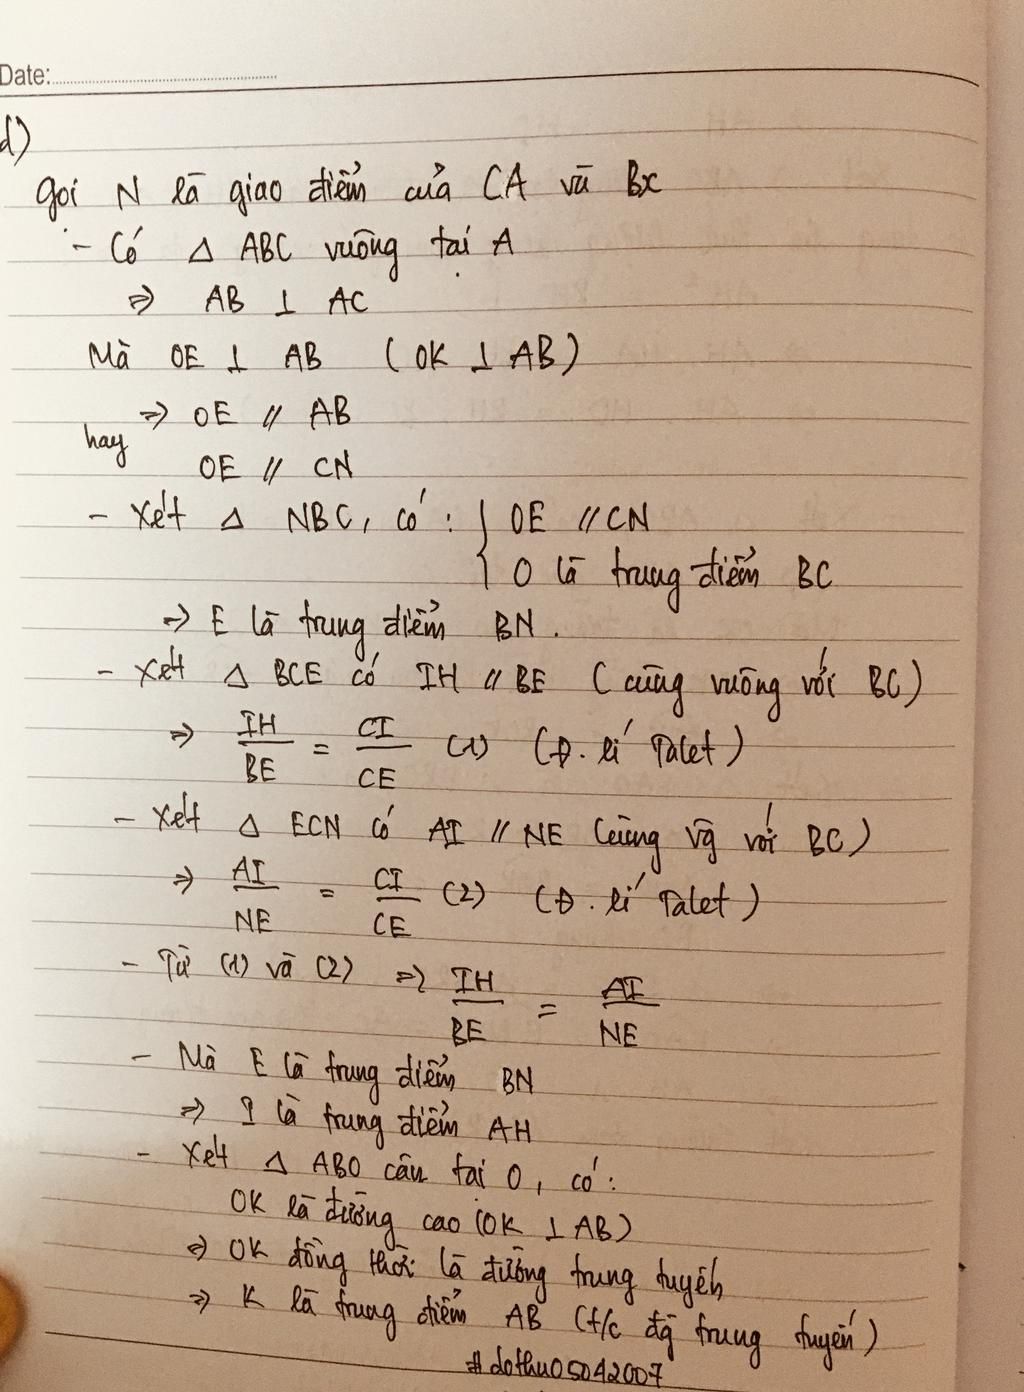 Date:
d)
Gọi N là giao điểm của CA và Bx
- Có Δ ABC vuông tại A
=> AB ⊥ AC
Mà OE ⊥ AB (OK ⊥ AB)
=> OE // AB
hay
OE // CN
- Xét Δ NBC, có: { OE // CN
O là trung điểm BC
=> E là trung điểm BN.
- Xét Δ BCE có IH // BE (cùng vuông với BC)
=> IH/BE = CI/CE (1) (Đ. lí Talet)
- Xét Δ ECN có AI // NE (cùng vg với BC)
=> AI/NE = CI/CE (2) (Đ. lí Talet)
- Từ (1) và (2) => IH/BE = AI/NE
- Mà E là trung điểm BN
=> I là trung điểm AH
- Xét Δ ABO cân tại O, có:
OK là đường cao (OK ⊥ AB)
=> OK đồng thời là đường trung tuyến
=> K là trung điểm AB (t/c đg trung tuyến)
#dothu05042007